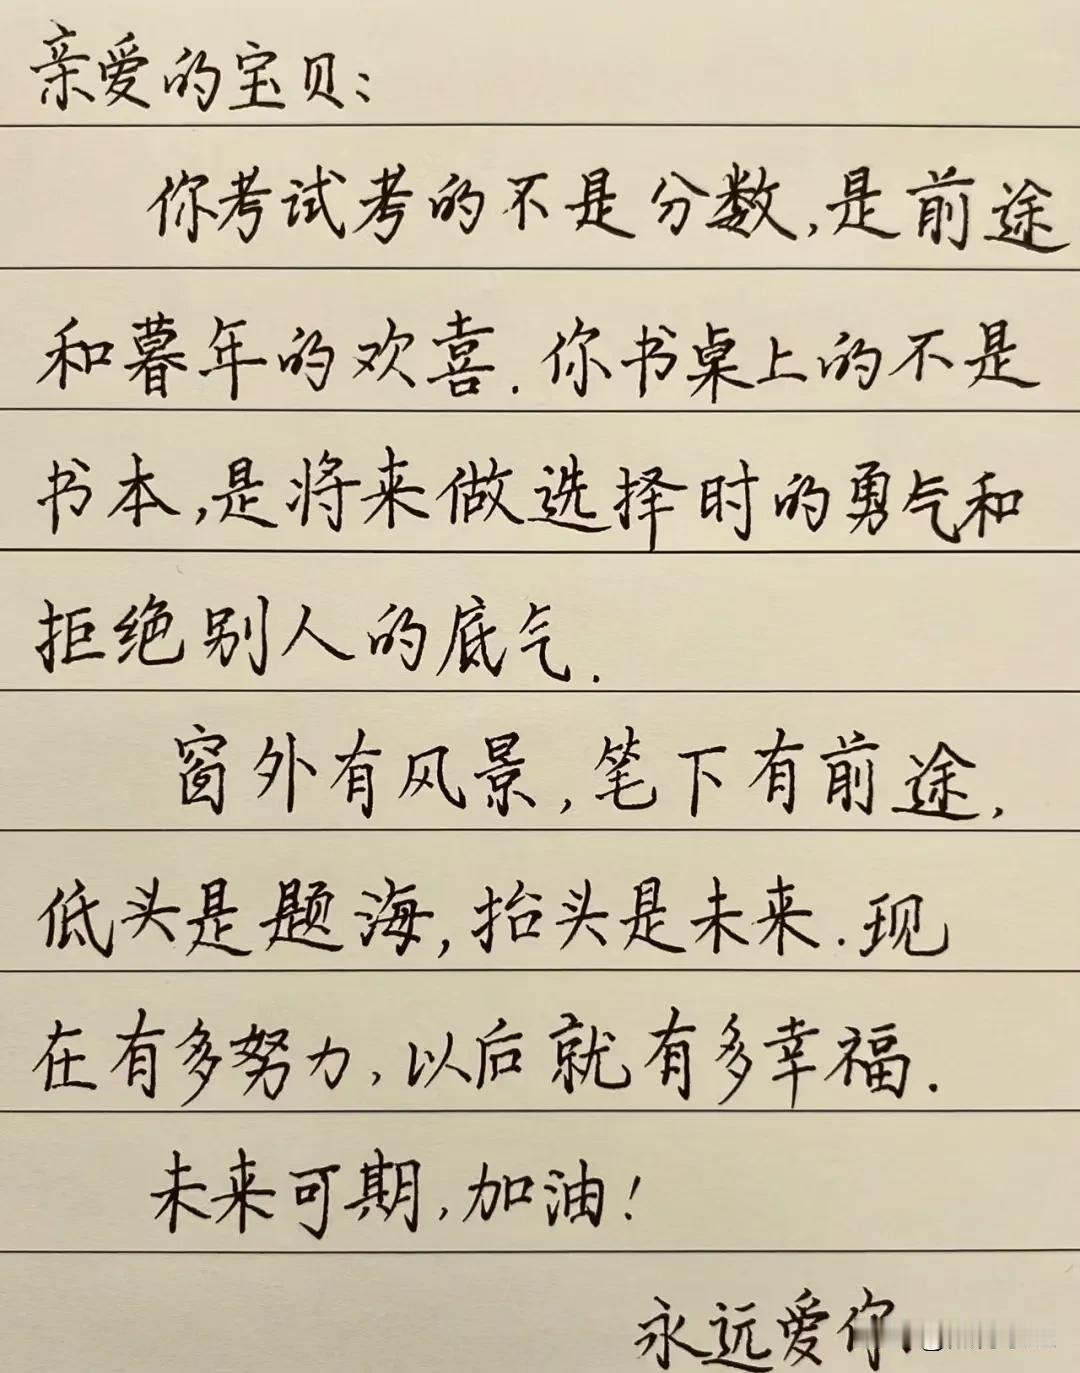 亲爱的宝贝：
你考试考的不是分数,是前途
和暮年的欢喜.你书桌上的不是
书本,是将来做选择时的勇气和
拒绝别人的底气.
窗外有风景,笔下有前途,
低头是题海,抬头是未来.现
在有多努力,以后就有多幸福.
未来可期,加油!
永远爱你